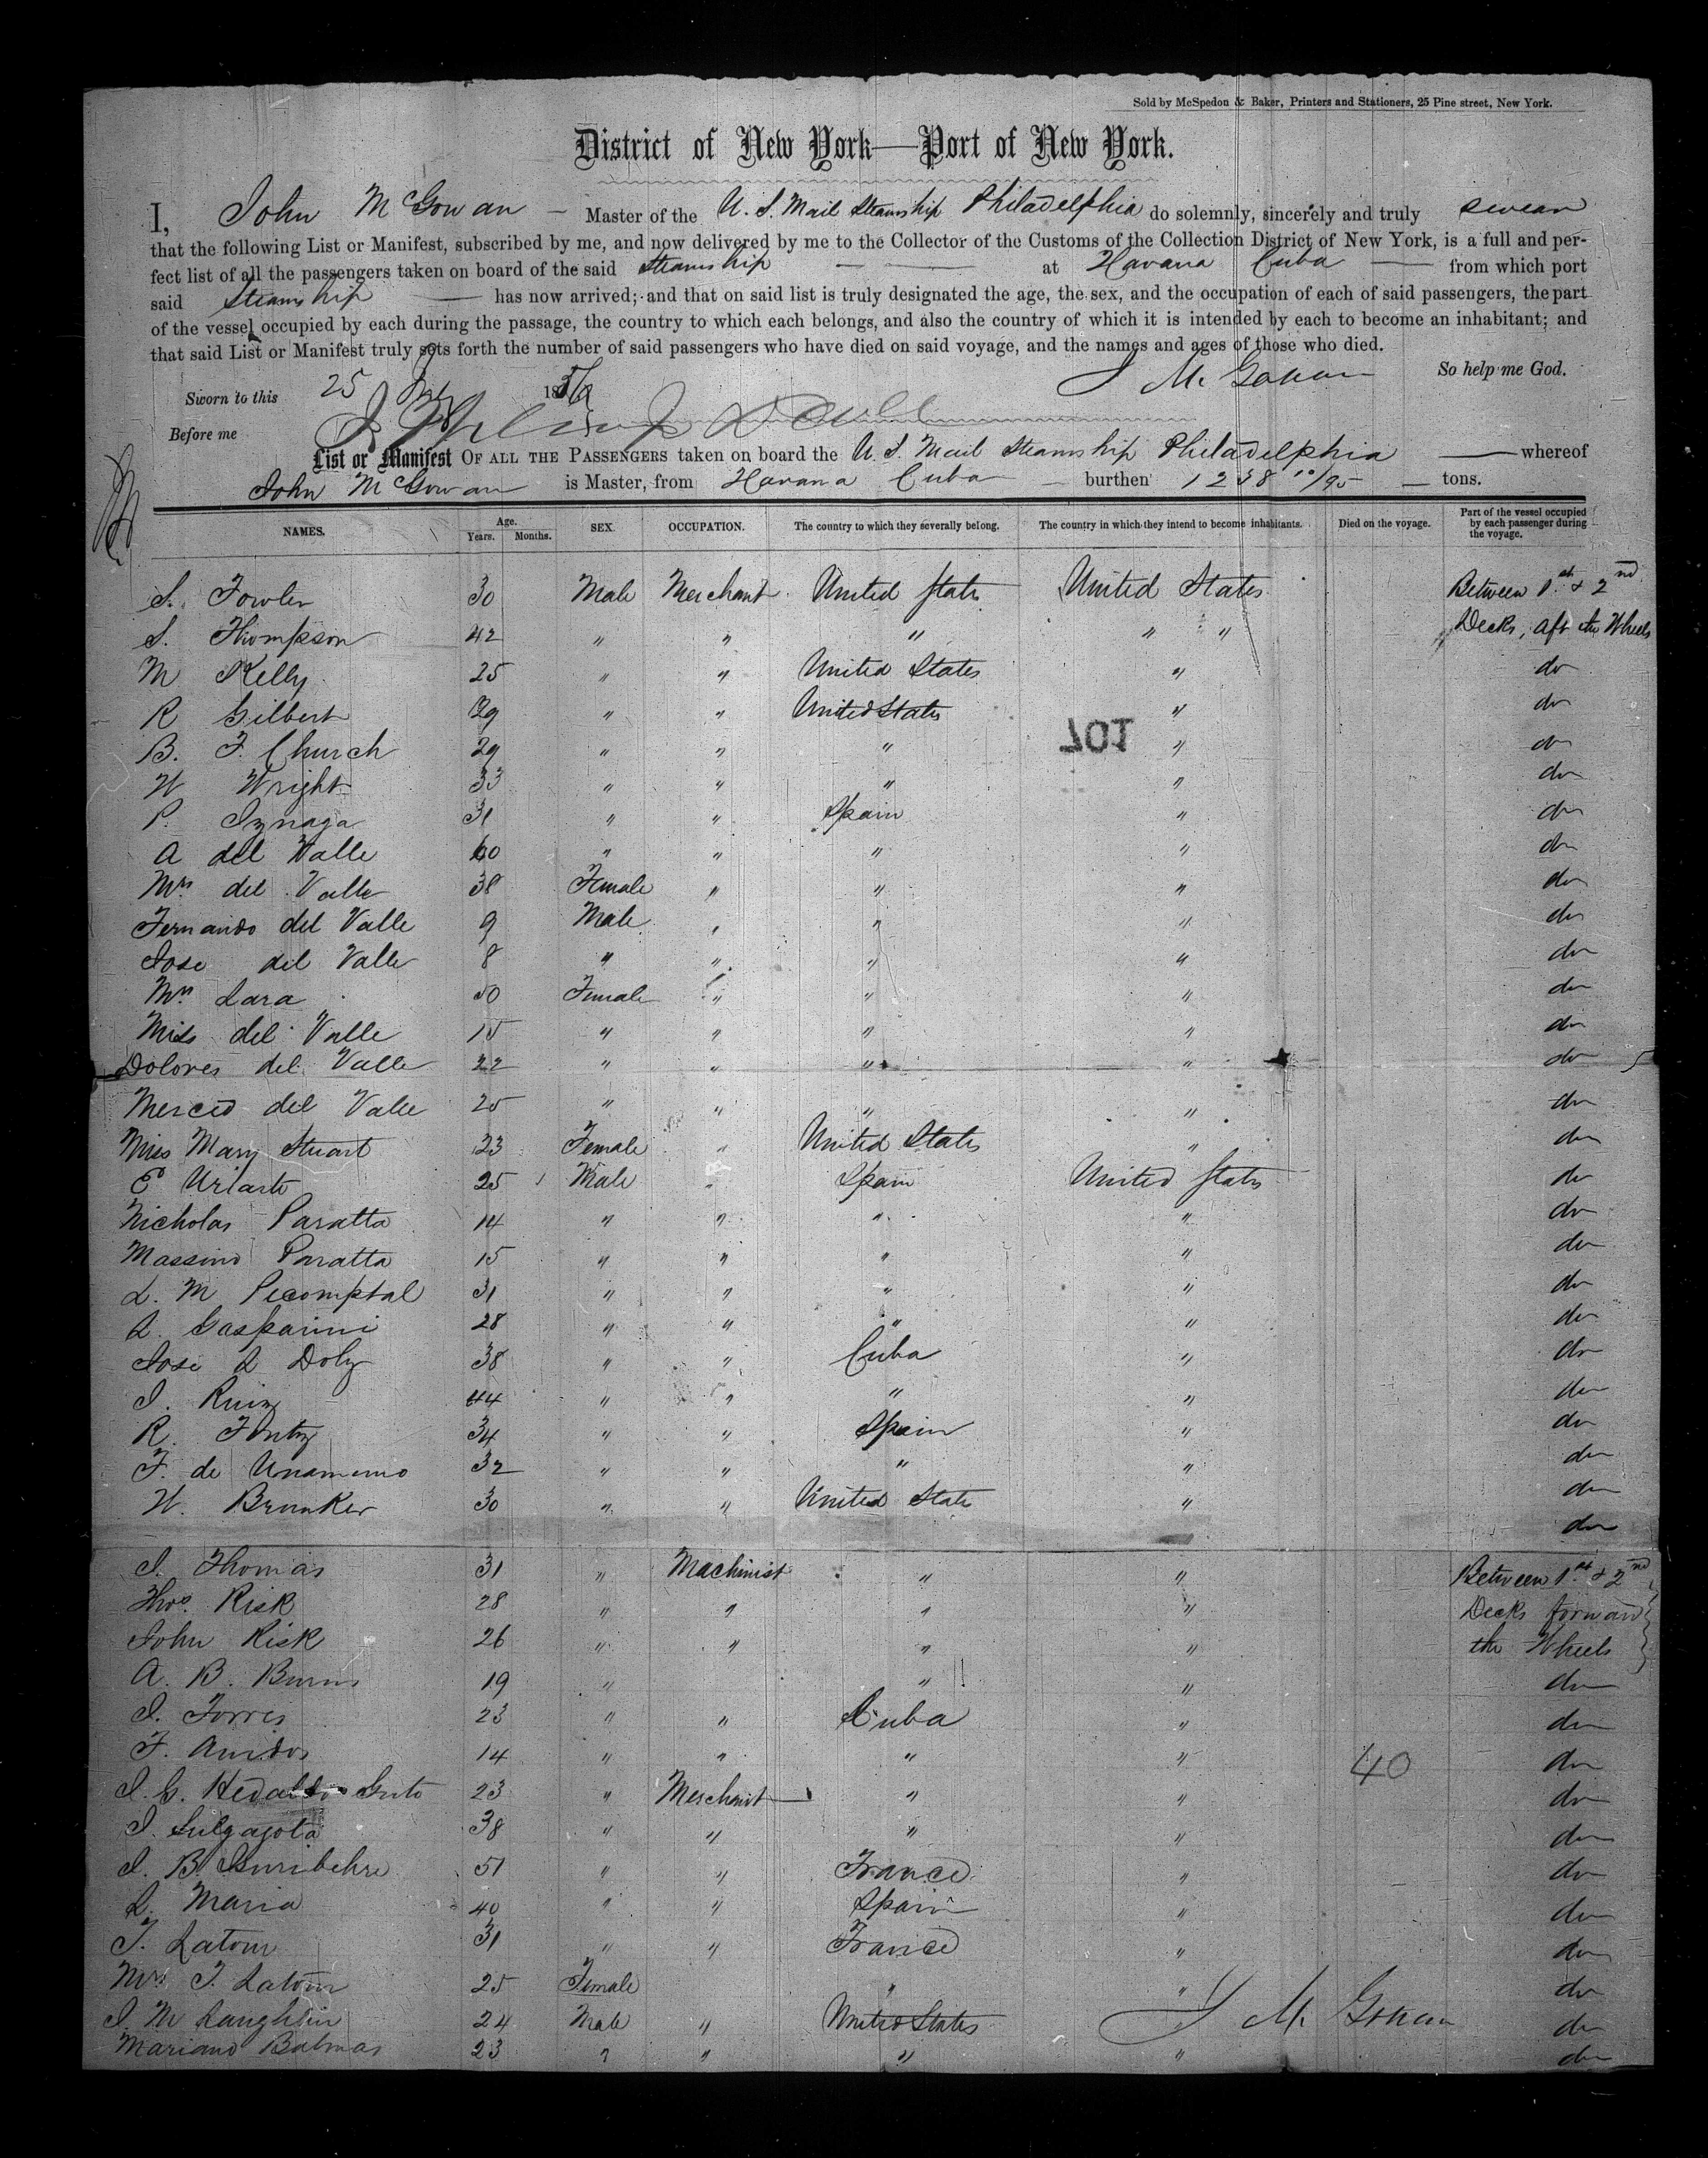 Sold by McSpedon & Baker, Printers and Stationers, 25 Pine street, New York.
District of New York—Port of New York.
I, John McGowan — Master of the U. S. Mail Steamship Philadelphia do solemnly, sincerely and truly swear
that the following List or Manifest, subscribed by me, and now delivered by me to the Collector of the Customs of the Collection District of New York, is a full and per-
fect list of all the passengers taken on board of the said Steamship — at Havana Cuba — from which port
said Steamship — has now arrived; and that on said list is truly designated the age, the sex, and the occupation of each of said passengers, the part
of the vessel occupied by each during the passage, the country to which each belongs, and also the country of which it is intended by each to become an inhabitant; and
that said List or Manifest truly sets forth the number of said passengers who have died on said voyage, and the names and ages of those who died.
J McGowan So help me God.
Sworn to this 25 18
Before me
List or Manifest OF ALL THE PASSENGERS taken on board the U. S. Mail Steamship Philadelphia — whereof
John McGowan is Master, from Havana Cuba — burthen 1238 10/95 — tons.
NAMES. Age. Years. Months. SEX. OCCUPATION. The country to which they severally belong. The country in which they intend to become inhabitants. Died on the voyage. Part of the vessel occupied by each passenger during the voyage.
S. Fowler 30 Male Merchant United States United States Between 1st & 2nd
S. Thompson 42 " " " " " Decks, aft the Wheels
M Kelly 25 " " United States " do
R Gilbert 29 " " United States " do
701
B. F. Church 29 " " " " do
W Wright 33 " " " " do
P. Iznaga 31 " " Spain " do
A del Valle 60 " " " " do
Mrs del Valle 38 Female " " " do
Fernando del Valle 9 Male " " " do
Jose del Valle 8 " " " " do
Mrs Lara 50 Female " " " do
Miss del Valle 15 " " " " do
Dolores del Valle 22 " " " " do
Merced del Valle 25 " " " " do
Miss Mary Stuart 23 Female " United States " do
E Uriarte 25 Male " Spain United States do
Nicholas Paratta 14 " " " " do
Massimo Paratta 15 " " " " do
L. M Pecomptal 31 " " " " do
L. Gasparini 28 " " " " do
Jose L Dolz 38 " " Cuba " do
J. Ruiz 44 " " " " do
R. 34 " " Spain " do
F. de Unamuno 32 " " " " do
W. Brunker 30 " " United States " do
do
J. Thomas 31 " Machinist " " Between 1st & 2nd
Thos. Risk 28 " " " " Decks forward
John Risk 26 " " " " the Wheels
A. B. Burns 19 " " " do
J. Torres 23 " " Cuba " do
F. Anidos 14 " " " " do
40
J. G. 23 " Merchant " " do
J. 38 " " " " do
J. B. 51 " " France " do
L. Maria 40 " " Spain " do
T. Latour 31 " " France " do
Mrs T. Latour 25 Female " " do
J. McLaughlin 24 Male " United States do
J McGowan
Mariano Balmas 23 " " " " do